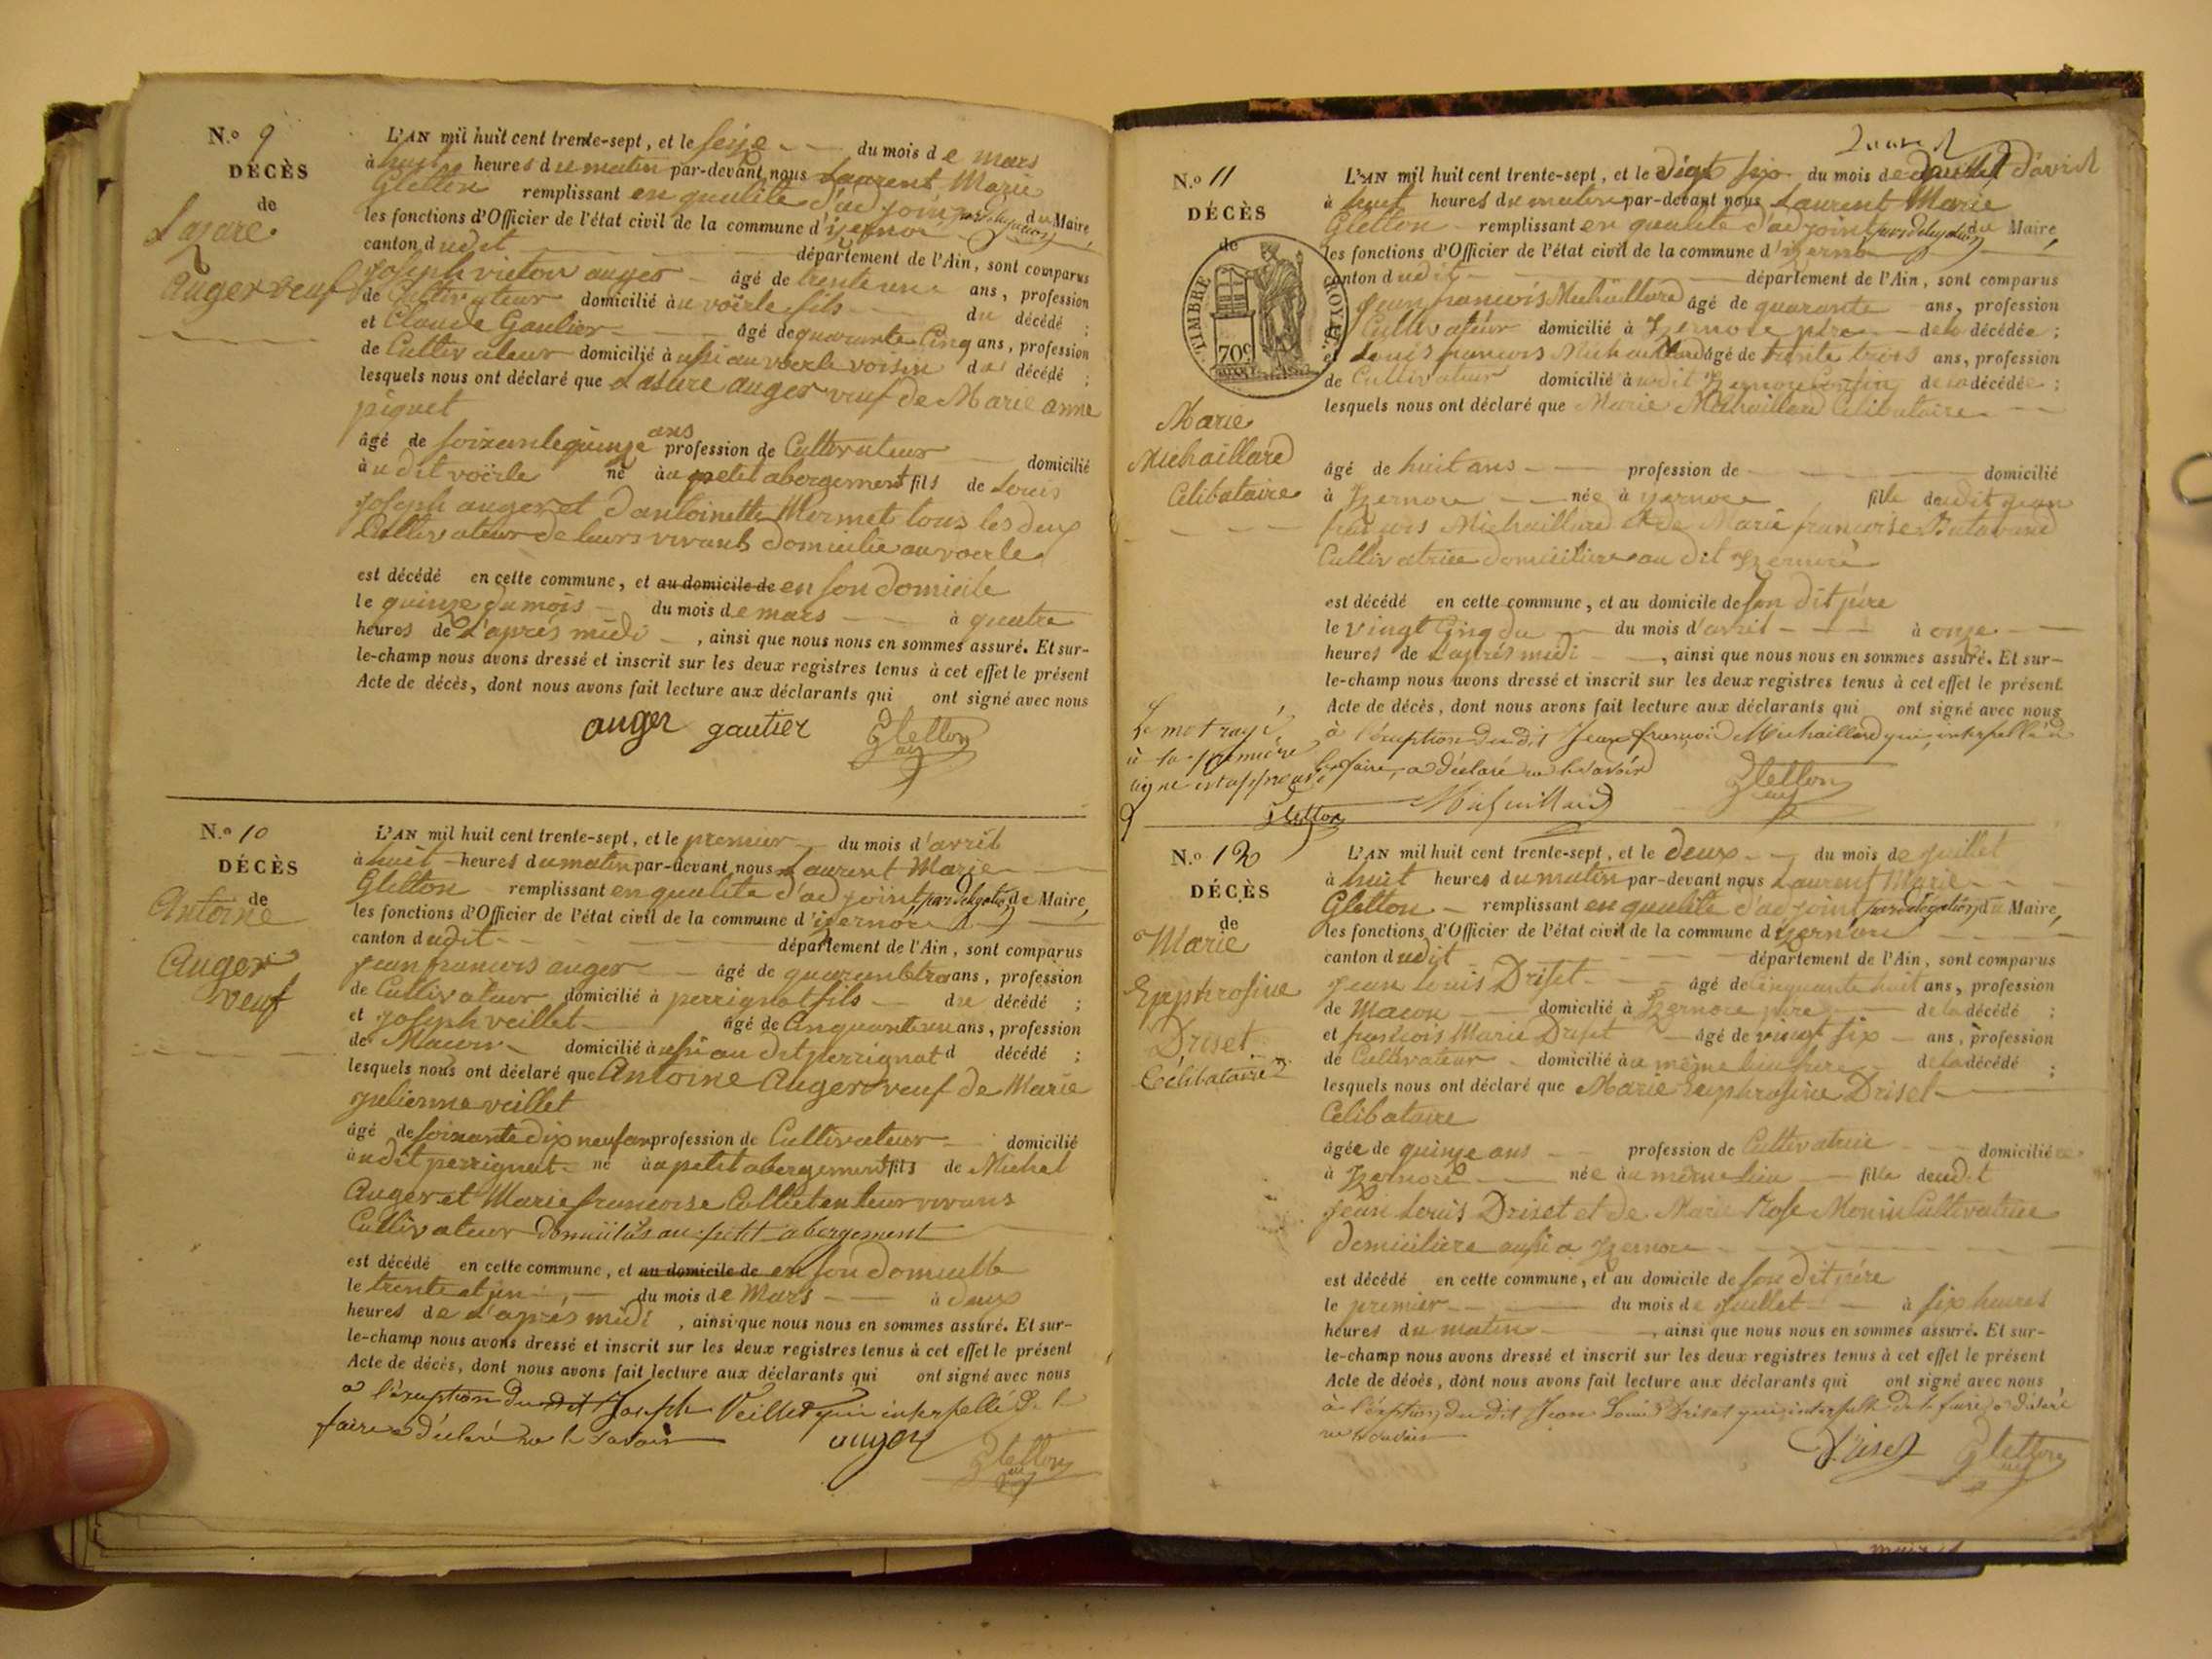 N.º 9
DÉCÈS
de
Lazare
Auger veuf
L'AN mil huit cent trente-sept, et le seize du mois de mars
à huit heures du matin par-devant nous Laurent Marie
Gletton remplissant en qualité d'adjoint par délégation du Maire,
les fonctions d'Officier de l'état civil de la commune d'izernore
canton dudit département de l'Ain, sont comparus
Joseph victor auger âgé de trente une ans, profession
de Cultivateur domicilié au voërle fils du décédé ;
et Claude Gautier âgé de quarante Cinq ans, profession
de Cultivateur domicilié aussi au voerle voisin du décédé ;
lesquels nous ont déclaré que Lasare auger veuf de Marie anne
piquet
âgé de soixante quinze ans profession de Cultivateur domicilié
audit voërle né au petit abergement fils de Louis
Joseph auger et d'antoinette Mermet tous les deux
Cultivateur de leurs vivant domicilié au voerle
est décédé en cette commune, et au domicile de en son domicile
le quinze du mois du mois de mars à quatre
heures de L'après midi, ainsi que nous nous en sommes assuré. Et sur-
le-champ nous avons dressé et inscrit sur les deux registres tenus à cet effet le présent
Acte de décès, dont nous avons fait lecture aux déclarants qui ont signé avec nous
auger gautier Gletton
adj
N.º 10
DÉCÈS
de
Antoine
Auger
veuf
L'AN mil huit cent trente-sept, et le premier du mois d'avril
à huit heures du matin par-devant nous Laurent Marie
Gletton remplissant en qualité d'adjoint par délégation de Maire,
les fonctions d'Officier de l'état civil de la commune d'izernore
canton dudit département de l'Ain, sont comparus
jean francois auger âgé de quarante trois ans, profession
de Cultivateur domicilié à perrignat fils du décédé ;
et joseph veillet âgé de Cinquante un ans, profession
de Macon domicilié aussi au dit perrignat d décédé ;
lesquels nous ont déclaré que Antoine Auger veuf de Marie
julienne veillet
âgé de soixante dix neuf ans profession de Cultivateur domicilié
audit perrignat né au petit abergement fils de Michel
Auger et Marie francoise Collet en leur vivans
Cultivateur domiciliés au petit abergement
est décédé en cette commune, et au domicile de en son domicille
le trente et un du mois de Mars à deux
heures de L'après midi, ainsi que nous nous en sommes assuré. Et sur-
le-champ nous avons dressé et inscrit sur les deux registres tenus à cet effet le présent
Acte de décès, dont nous avons fait lecture aux déclarants qui ont signé avec nous
a l'exception du dit Joseph Veillet qui interpellé de le
faire a déclaré ne le savoir
auger Gletton
adj
N.º 11
DÉCÈS
de
TIMBRE ROYAL
70c
Marie
Michaillard
Célibataire
L'AN mil huit cent trente-sept, et le vigt six du mois de juillet d'avril
à huit heures du matin par-devant nous Laurent Marie
Gletton remplissant en qualité d'adjoint par délégation du Maire,
les fonctions d'Officier de l'état civil de la commune d'izernore
canton dudit département de l'Ain, sont comparus
Jean francois Michaillard âgé de quarante ans, profession
Cultivateur domicilié à Izernore père de la décédée ;
et Louis francois Michaillard âgé de trente trois ans, profession
de Cultivateur domicilié audit Izernore Cousin de la décédée ;
lesquels nous ont déclaré que Marie Michaillard Célibataire
âgé de huit ans profession de domicilié
à Izernore née à yzernore fille dudit jean
francois Michaillard et de Marie francoise
Cultivatrice domiciliée au dit Izernore
est décédé en cette commune, et au domicile de son dit père
le vingt Cinq du du mois d'avril à onze
heures de L'après midi, ainsi que nous nous en sommes assuré. Et sur-
le-champ nous avons dressé et inscrit sur les deux registres tenus à cet effet le présent
Acte de décès, dont nous avons fait lecture aux déclarants qui ont signé avec nous
à l'exception du dit Jean françois Michaillard qui, interpellé de
le faire, a déclaré ne le savoir
Le mot rayé
à la première
ligne est approuvé
Gletton Michaillard Gletton
adj
N.º 12
DÉCÈS
de
Marie
Euphrosine
Driset
Célibataire
L'AN mil huit cent trente-sept, et le deux du mois de juillet
à huit heures du matin par-devant nous Laurent Marie
Gletton remplissant en qualité d'adjoint par délégation du Maire,
les fonctions d'Officier de l'état civil de la commune d izernore
canton dudit département de l'Ain, sont comparus
Jean Louis Driset âgé de Cinquante huit ans, profession
de Macon domicilié à Izernore père de la décédé ;
et francois Marie Driset âgé de vingt six ans, profession
de Cultivateur domicilié au même lieu frère de la décédé ;
lesquels nous ont déclaré que Marie Euphrosine Driset
Célibataire
âgée de quinze ans profession de Cultivatrice domiciliée
à Izernore née au même lieu fille dudit
Jean Louis Driset et de Marie Rose Monin Cultivatrice
domicilière aussi a Izernore
est décédé en cette commune, et au domicile de son dit père
le premier du mois de Juillet à six heures
heures du matin, ainsi que nous nous en sommes assuré. Et sur-
le-champ nous avons dressé et inscrit sur les deux registres tenus à cet effet le présent
Acte de décès, dont nous avons fait lecture aux déclarants qui ont signé avec nous
à l'exception du dit Jean Louis Driset qui interpellé de le faire a déclaré
ne le savoir
Driset Gletton
adj